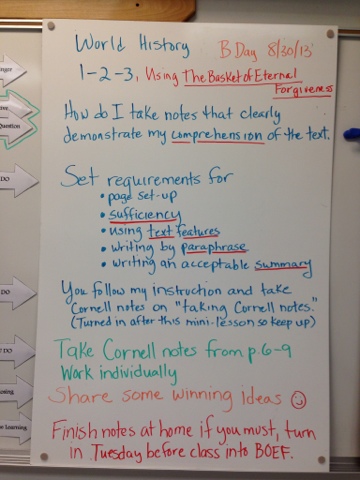 World History B Day 8/30/13
1-2-3, Using The Basket of Eternal
Forgiveness
How do I take notes that clearly
demonstrate my comprehension of the text.
Set requirements for
• page set-up
• sufficiency
• using text features
• writing by paraphrase
• writing an acceptable summary
You follow my instruction and take
Cornell notes on "taking Cornell notes."
(Turned in after this mini-lesson so keep up)
Take Cornell notes from p.6-9
Work individually
Share some winning ideas ☺
Finish notes at home if you must, turn
in Tuesday before class into BOEF.
Question
DO
DO
DO
Learning